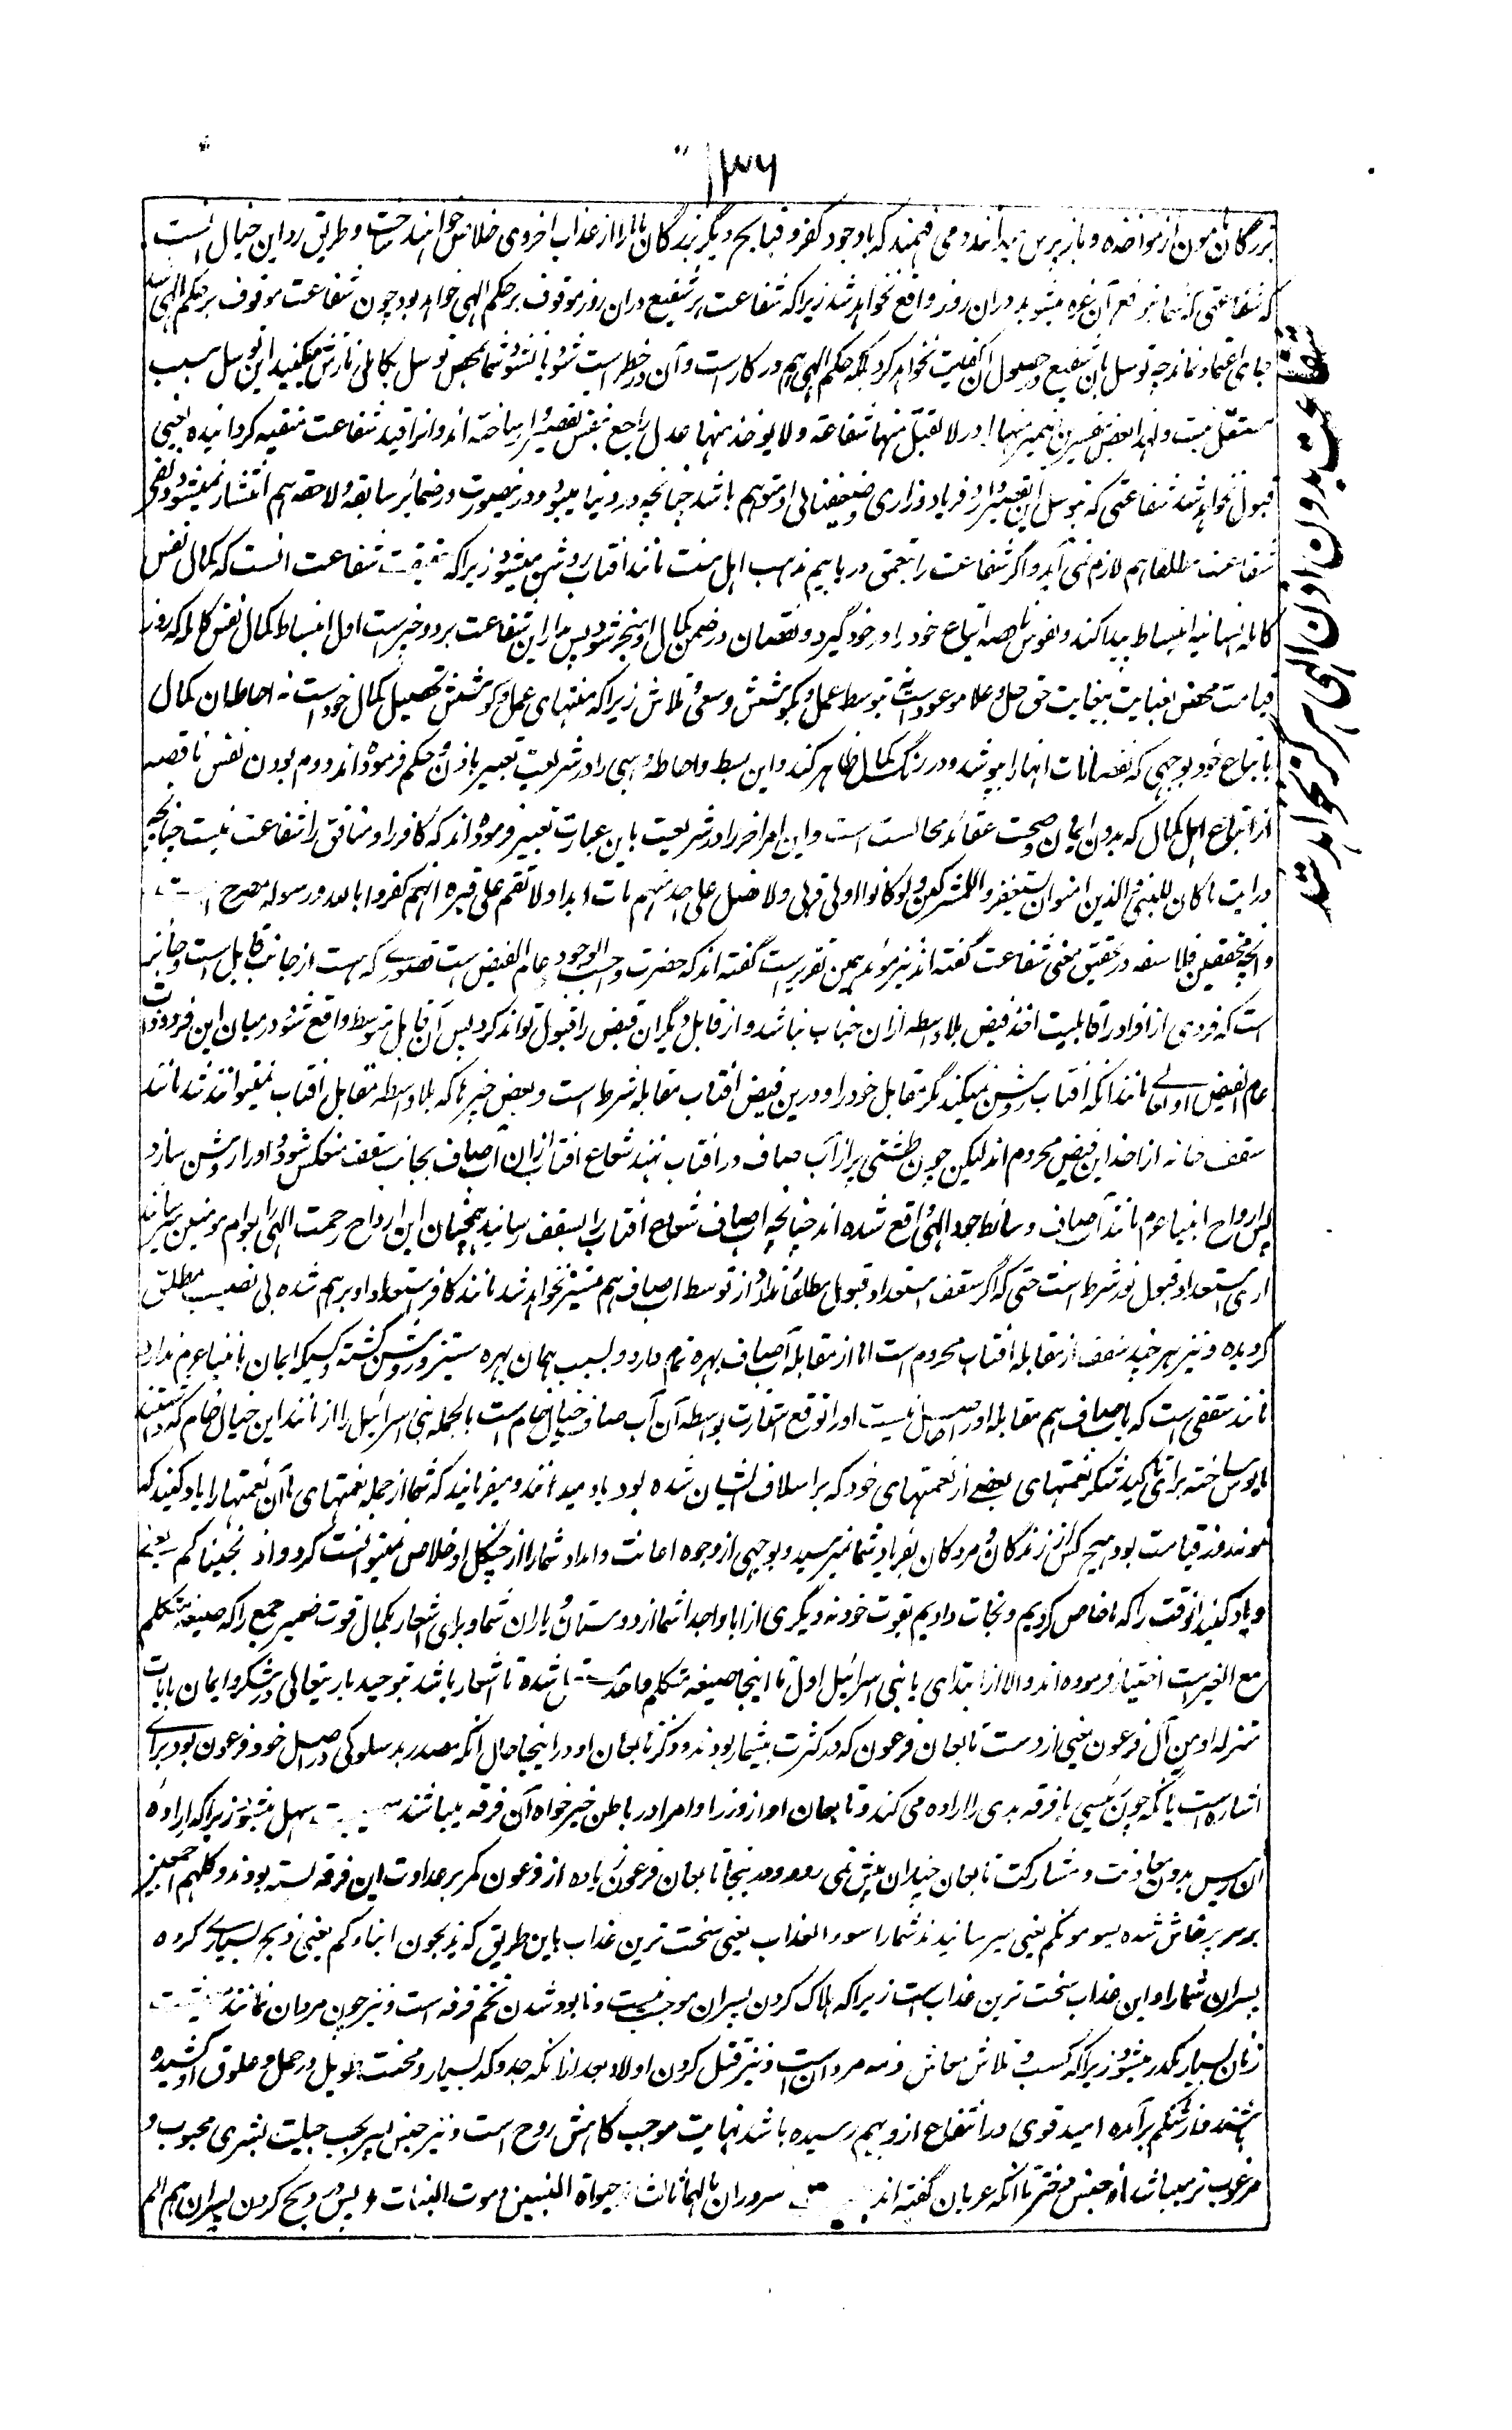 ۱۳۶
بزرگان مامون از مواخذه و باز پرس میدانند و می فهمند که با وجود کفر و قبایح دیگر بزرگان ما ما را از عذاب اخروی خلاص خواهند ساخت و طریق رد این خیال آنست
که شفاعتی که شما بر زعم آن غره میشوید دران روز واقع نخواهد شد زیرا که شفاعت هر شفیع دران روز موقوف بر حکم الهی خواهد بود چون شفاعت موقوف بر حکم الهی شد
جای اعتماد نماند چه توسل بآن شفیع و حصول آن کفایت نخواهد کرد بلکه حکم الهی هم در کار است و آن در خطر است شود یا نشود شما بمحض توسل بکاملی نازش میکنید این توسل سبب
مستقل نیست و لهذا بعض مفسرین ضمیر منها را در لا تقبل منها شفاعة و لا یوخذ منها عدل راجع بنفس مقصره ساخته اند و آنرا قید شفاعت منفیه گردانیده یعنی
قبول نخواهد شد شفاعتی که بتوسل این نفس و فریاد و زاری و ضعیف نالی او هم باشد چنانچه در دنیا میشود و درینصورت در ضمائر سابقه و لاحقه هم انتشار نمیشود و نفی
شفاعت مطلقا هم لازم نمی آید و اگر شفاعت را بتعمق دریابیم مذهب اهل سنت مانند آفتاب روشن میشود زیرا که حقیقت شفاعت آنست که کمال نفس
کامله انسانیه انبساط پیدا کند و نفوس ناقصه اتباع خود را در خود گیرد و نقصان در ضمن کمال او منجبر شود پس مدار این شفاعت بر دو چیز است اول انبساط کمال نفس کامله که روز
قیامت محض بعنایت بیغایت حق جل و علا موعود است نه بتوسط عمل و بکوشش و سعی و تلاش زیرا که منتهای عمل و کوشش تحصیل کمال خود است نه احاطه آن کمال
باتباع خود بوجهی که نقصانات آنها را بپوشد و در رنگ کمال ظاهر کند و این بسط و احاطه وهبی را در شریعت تعبیر باذن و حکم فرموده اند دوم بودن نفس ناقصه
از اتباع اهل کمال که بدون ایمان و صحت عقائد محالست است و این امر آخر را در شریعت باین عبارت تعبیر فرموده اند که کافر را و منافق را شفاعت نیست چنانچه
در آیت ما کان للنبی و الذین امنوا ان یستغفروا للمشرکین و لو کانوا اولی قربی و لا تصل علی احد منهم مات ابدا و لا تقم علی قبره انهم کفروا بالله و رسوله مصرح است
و آنچه محققین فلاسفه در تحقیق معنی شفاعت گفته اند نیز موئد همین تقریر است گفته اند که حضرت واجب الوجود عام الفیض است قصوریکه هست از جانب قابل است و جائز
است که فردی از افراد را قابلیت اخذ فیض بلا واسطه ازان جناب نباشد و از قابل دیگر آن فیض را قبول تواند کرد پس آن قابل متوسط واقع شود در میان این فرد و ذات
عام الفیض اولی مانند آنکه آفتاب روشن نمیکند مگر مقابل خود را و درین فیض آفتاب مقابله شرط است و بعض چیزها که بلا واسطه مقابل آفتاب نمیتوانند شد مانند
سقف خانه از اخذ این فیض محروم اند لیکن چون طشتی پر از آب صاف در آفتاب نهند شعاع آفتاب ازان آب صاف بجانب سقف منعکس شود و او را روشن سازد
پس ارواح انبیا عم مانند آب صاف وسائط جود الهی واقع شده اند چنانچه آب صاف شعاع آفتاب را بسقف رسانید همچنان این ارواح رحمت الهی را بعوام مومنین میرسانند
آری استعداد قبول نور شرط است حتی که اگر سقف استعداد قبول مطلقا ندارد از توسط آب صاف هم مستنیر نخواهد شد مانند کافر که استعداد او برهم شده بی نصیب مطلق
گردیده و نیز هر چند سقف از مقابله آفتاب محروم است اما از مقابله آب صاف بهره تمام دارد و بسبب همان بهره مستنیر و روشن گشته و کسیکه ایمان بانبیا عم ندارد
مانند سقفی است که با آب صاف هم مقابله او را حاصل نیست او را توقع استنارت بواسطه آن آب صاف خیال خام است بالجمله بنی اسرائیل را از مانند این خیال خام که داشتند
مایوس ساخته برای تاکید شکر نعمتهای بعضی از نعمتهای خود که بر اسلاف ایشان شده بود یاد میدهند و میفرمایند که شما از جمله نعمتهای ما آن نعمتها را یاد کنید که
نمونه روز قیامت بود هیچ کس از زندگان و مردگان بفریاد شما نمیرسید و بوجهی از وجوه اعانت و امداد شما را از چنگل او خلاص نمیتوانست کرد و اذ نجیناکم یعنی
و یاد کنید آنوقت را که ما خاص کردیم و نجات دادیم بقوت خود نه دیگری از ابا و اجداد شما از دوستان و یاران شما و برای اشعار بکمال قوت ضمیر جمع را که صیغه متکلم
مع الغیر است اختیار فرموده اند و الا از ابتدای یا بنی اسرائیل اول تا اینجا صیغه متکلم واحد شده تا اشعار باشد بتوحید باریتعالی در شکر و ایمان بایات
منزله او من آل فرعون یعنی از دست تابعان فرعون که در کثرت بیشمار بودند و ذکر تابعان او در اینجا حال آنکه مصدر بد سلوکی در اصل خود فرعون بود برای
اشاره است بآنکه چون رئیسی با فرقه بدی را اراده می کند و تابعان او از وزرا و امرا در باطن خیر خواه آن فرقه میباشند سهل میشود زیرا که اراده
آن رئیس بدون معاونت و مشارکت تابعان چندان پیش نمی رود و درینجا تابعان فرعون زیاده از فرعون کمر بر عداوت این فرقه بسته بودند و کلهم اجمعین
بر سر پرخاش شده یسومونکم یعنی میرسانیدند شما را سوء العذاب یعنی سخت ترین عذاب باین طریق که یذبحون ابناءکم یعنی ذبح بسیاری کرده
پسران شما را و این عذاب سخت ترین عذاب است زیرا که هلاک کردن پسران موجب نیست و نابود شدن تخم فرقه است و نیز چون مردان نمانند معیشت
زنان بسیار مکدر میشود زیرا که کسب و تلاش معاش ذمه مردان است و نیز قتل کردن اولاد بعد ازانکه جد و کد بسیار و محنت طویل در حمل و علوق او کشیده
باشند و از شکم برآمده امید قوی در انتفاع ازو بهم رسیده باشد نهایت موجب کاهش روح است و نیز جنس پسر بحسب جبلیت بشری محبوب و
مرغوب تر میباشد از جنس دختر تا آنکه عربان گفته اند سروران ما لهما ثالث حیوة البنین و موت البنات و پس ذبح کردن پسران هم الم
شفاعت بدون اذن الهی هرگز نخواهد شد